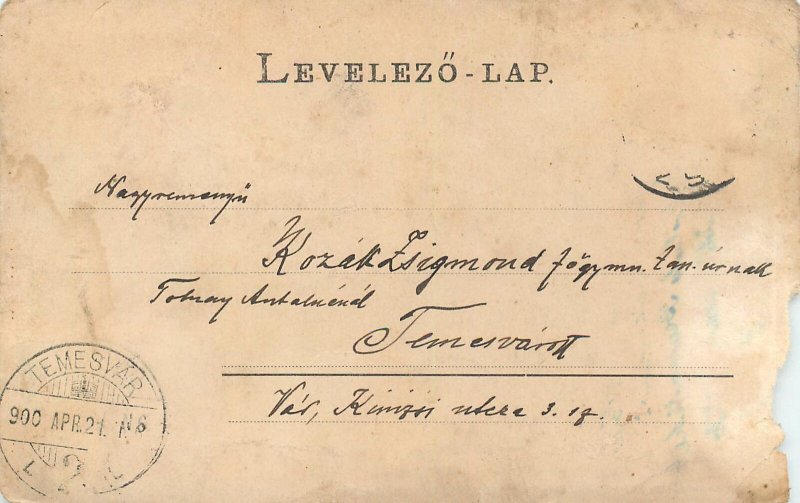 LEVELEZŐ-LAP.
Nagyreményű
Kozák Zsigmond főgymn. tan. úrnak
Tolnay Antalnénál
Temesvárott
Vár, Kinizsi utcza 3. sz.
TEMESVÁR
900 APR. 21. N8